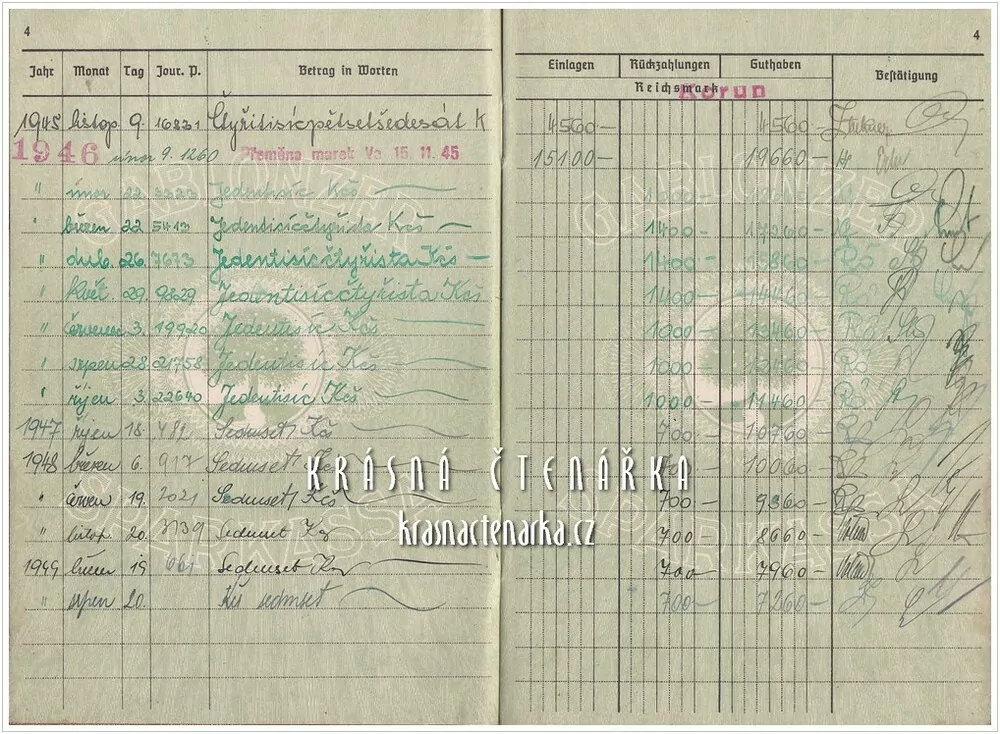 4 4
Jahr Monat Tag Jour. P. Betrag in Worten Einlagen Rückzahlungen Guthaben Bestätigung
Reichsmark Korun
1945 listop. 9. 16831 Čtyřitisícpětsetšedesát K 4560- 4560-
1946 únor 9. 1260 Přeměna marek Vo 15.11.45 15100- 19660-
" únor 22 3323 Jedentisíc Kčs
" březen 22 5413 Jedentisícčtyřista Kčs 1400- 17260-
" dub. 26. 7673 Jedentisícčtyřista Kčs 1400- 15860-
" květ. 29. 9829 Jedentisícčtyřista Kčs 1400- 14460-
" červenec 3. 19920 Jedentisíc Kčs 1000- 13460-
" srpen 28. 21758 Jedentisíc Kčs 1000- 12460-
" říjen 3. 22640 Jedentisíc Kčs 1000- 11460-
1947 říjen 18. Sedmset Kčs 700- 10760-
1948 březen 6. 917 Sedmset Kčs
KRÁSNÁ ČTENÁŘKA
" červen 19. 2021 Sedmset Kčs 700- 9360-
krasnactenarka.cz
" listop. 20. 3739 Sedmset 700- 8660-
1949 březen 19 661 Sedmset 700- 7960-
" srpen 20. Kčs sedmset 700- 7260-
GABLONZER GABLONZER
SPARKASSE SPARKASSE